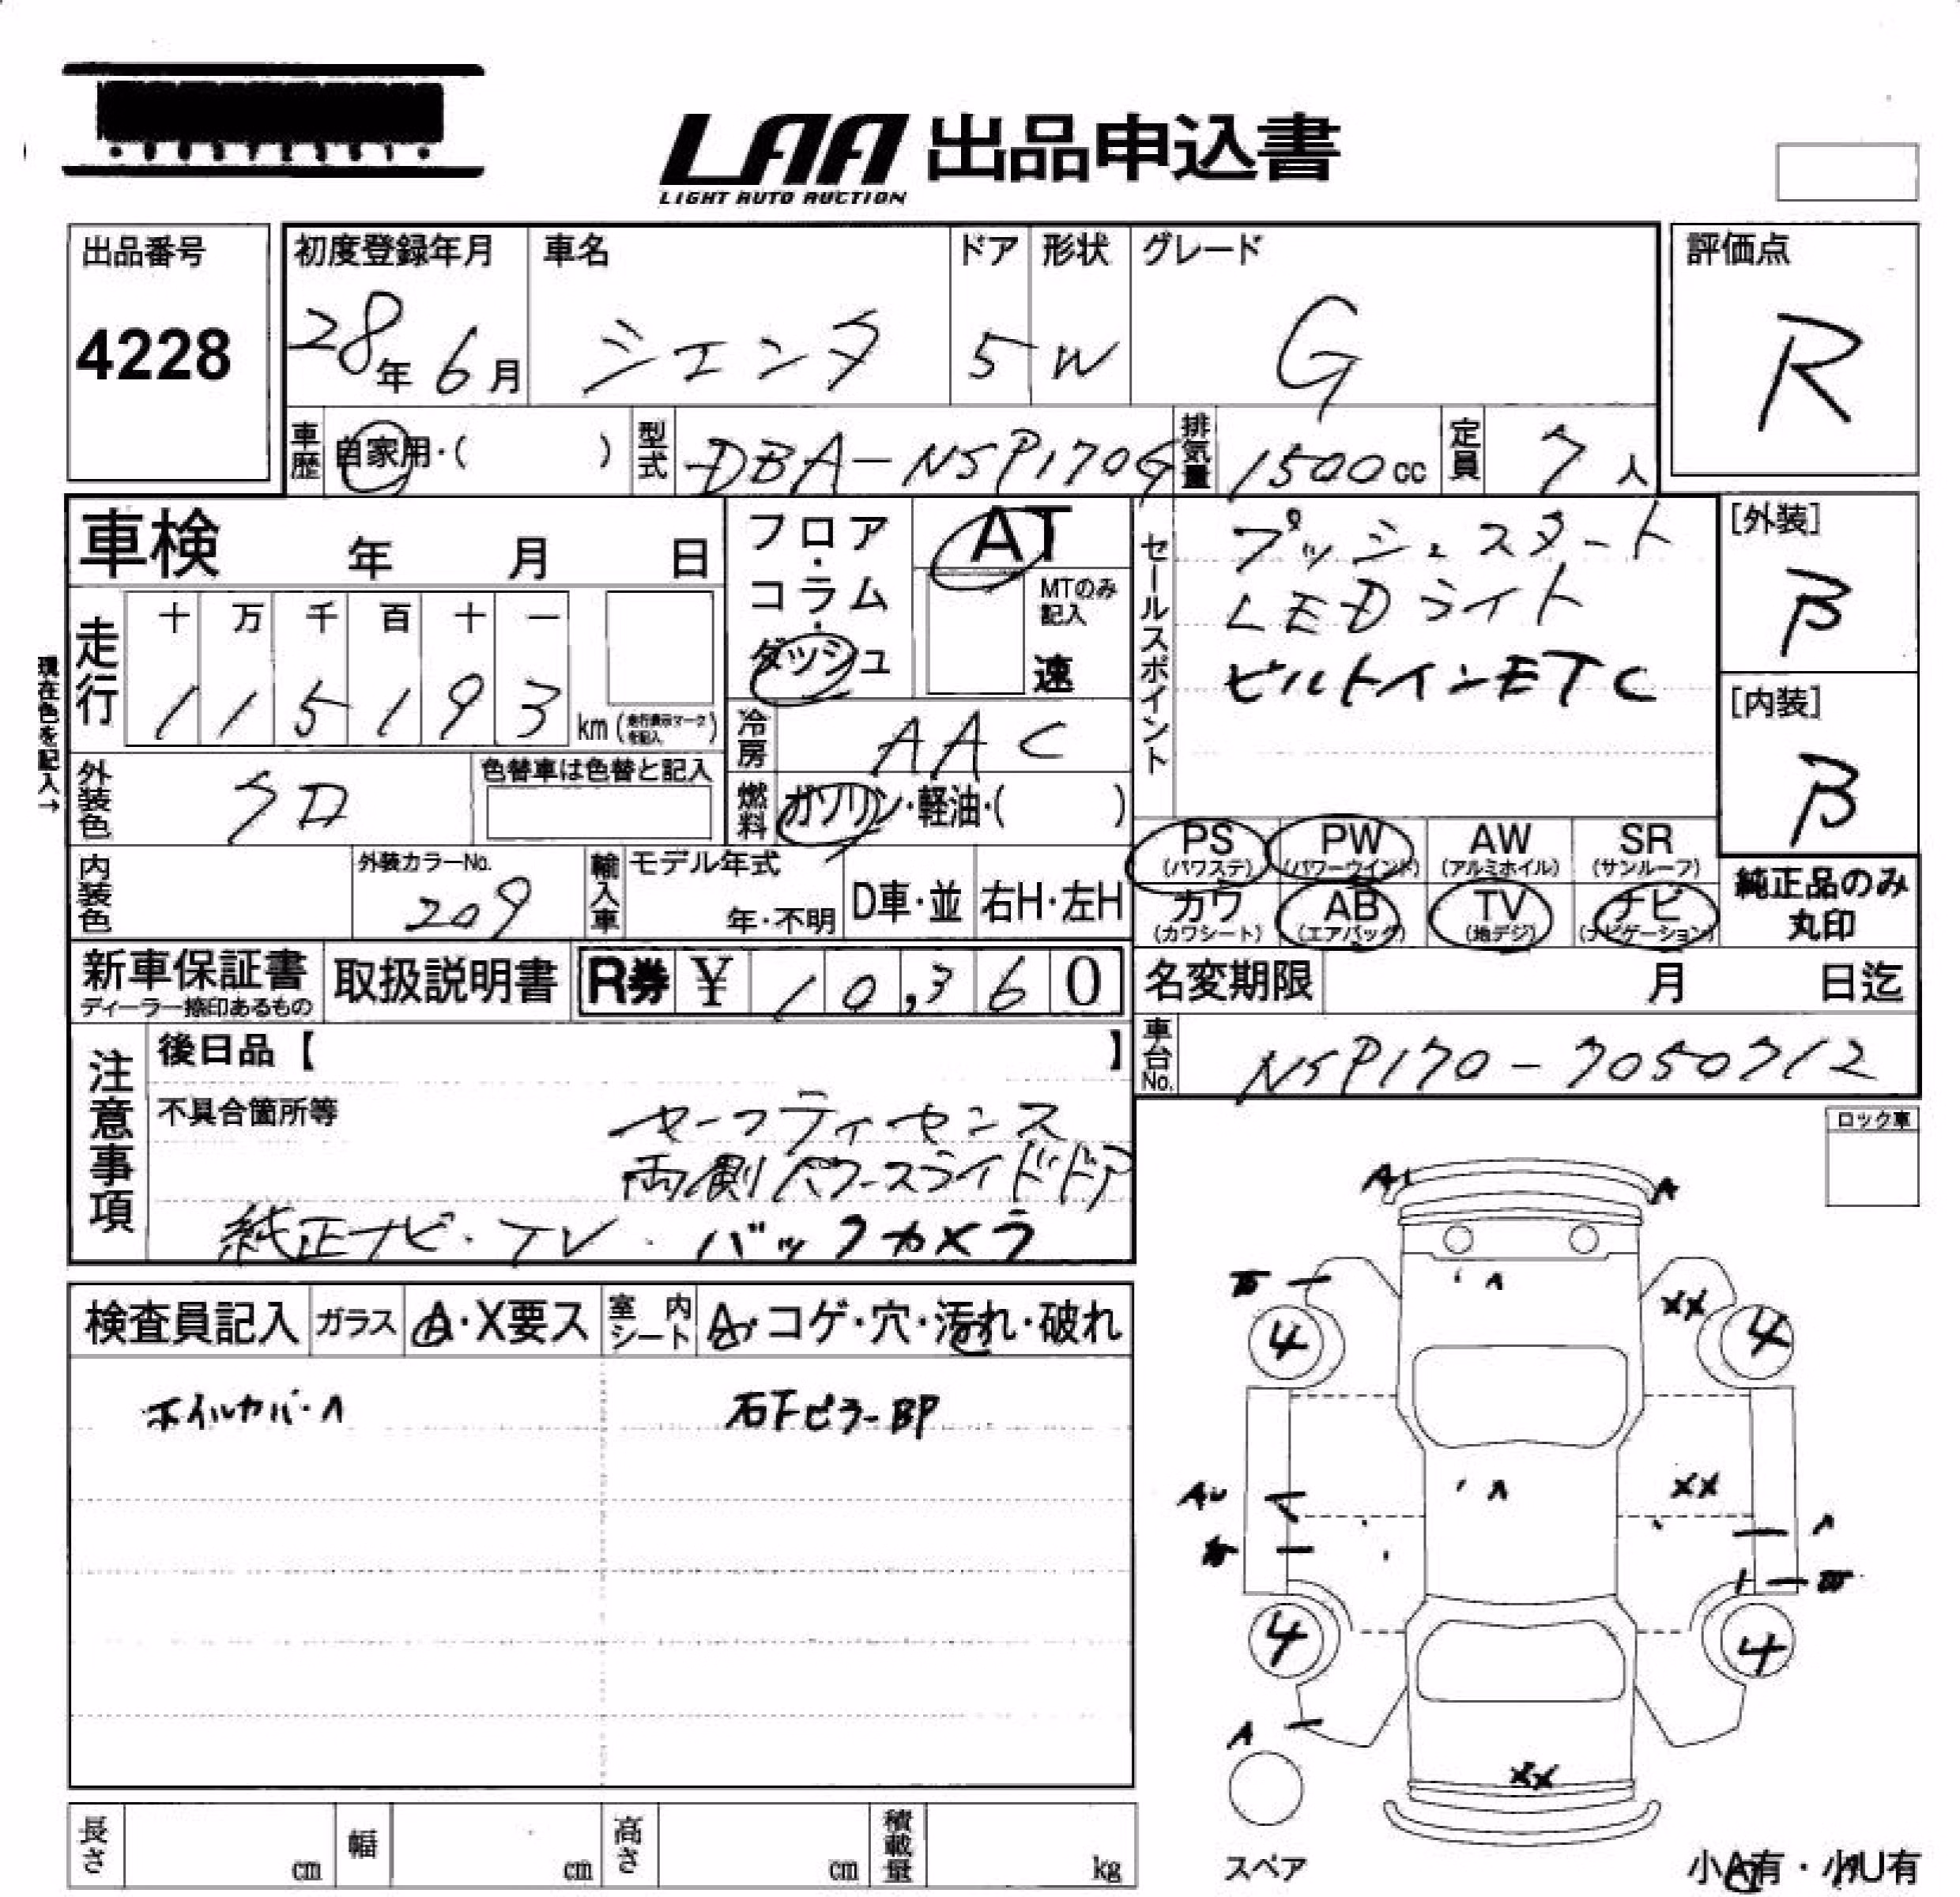 LAA 出品申込書
LIGHT AUTO AUCTION
出品番号
4228
初度登録年月
28年 6月
車名
シエンタ
ドア
5
形状
W
グレード
G
評価点
R
車歴
自家用・( )
型式
DBA-NSP170G
排気量
1500cc
定員
7人
車検 年 月 日
フロア・コラム・ダッシュ
AT
MTのみ記入
速
セールスポイント
プッシュスタート
LEDライト
ビルトインETC
[外装]
B
[内装]
B
現在色を記入→
走行
十 万 千 百 十 一
1 1 5 1 9 3
km (走行表示マークを記入)
冷房
AAC
外装色
クロ
色替車は色替と記入
燃料
ガソリン・軽油・( )
PS (パワステ)
PW (パワーウインド)
AW (アルミホイル)
SR (サンルーフ)
カワ (カワシート)
AB (エアバッグ)
TV (地デジ)
ナビ (ナビゲーション)
純正品のみ
丸印
内装色
外装カラーNo.
209
輸入車
モデル年式
年・不明
D車・並
右H・左H
新車保証書
ディーラー捺印あるもの
取扱説明書
R券 ¥ 10,360
名変期限 月 日迄
車台No.
NSP170-7050712
注意事項
後日品【 】
不具合箇所等
セーフティセンス
両側パワースライドドア
純正ナビ・TV・バックカメラ
ロック車
検査員記入
ガラス
A・X要ス
室内シート
A・コゲ・穴・汚れ・破れ
ホイルカバーA
右FピラーBP
A1
A
A
XX
4
4
A
XX
AU
A
4
4
A
XX
スペア
小A有・小U有
長さ cm
幅 cm
高さ cm
積載量 kg